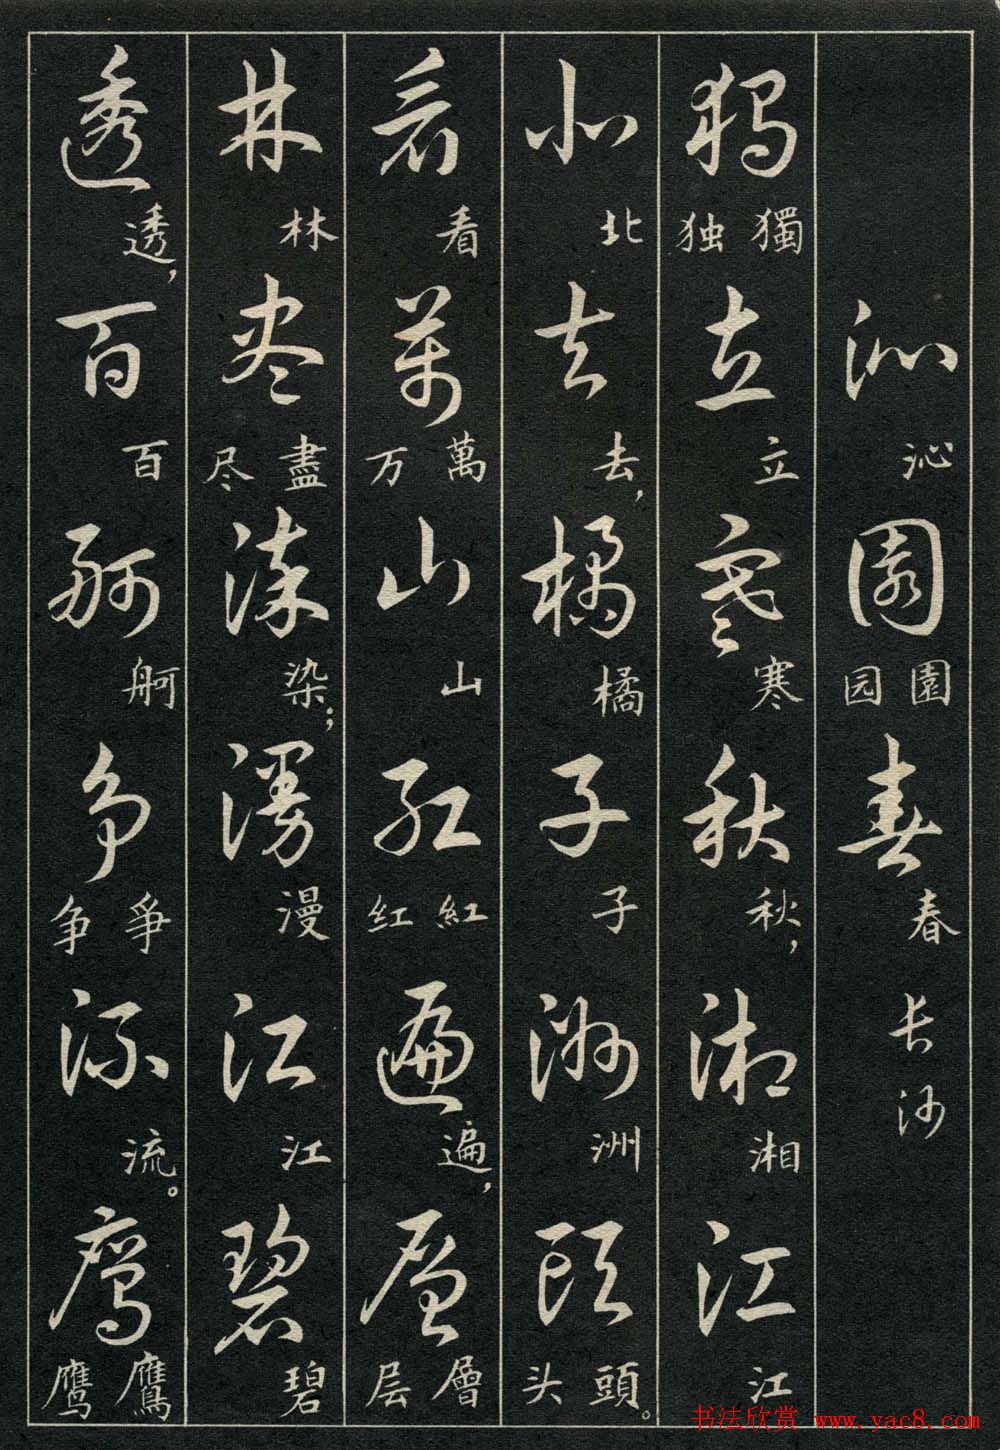 沁 沁 園 園 园 春 春 长沙
獨 獨 独 立 立 寒 寒 秋 秋， 湘 湘 江 江
北 北 去 去， 橘 橘 子 子 洲 洲 頭 頭 头。
看 看 萬 萬 万 山 山 紅 紅 红 遍 遍， 層 層 层
林 林 盡 盡 尽 染 染； 漫 漫 江 江 碧 碧
透 透， 百 百 舸 舸 爭 爭 争 流 流。 鷹 鷹 鹰
书法欣赏 www.yac8.com